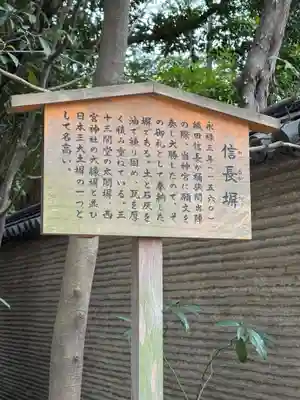 信長塀
永禄三年(一五六〇)
織田信長が桶狭間出陣
の際、当神宮に願文を
奏し大勝したので、そ
の御礼として奉納した
塀である。土と石灰を
油で練り固め、瓦を厚
く積み重ねている。三
十三間堂の太閤塀、西
宮神社の大練塀と並び
日本三大土塀の一つと
して名高い。